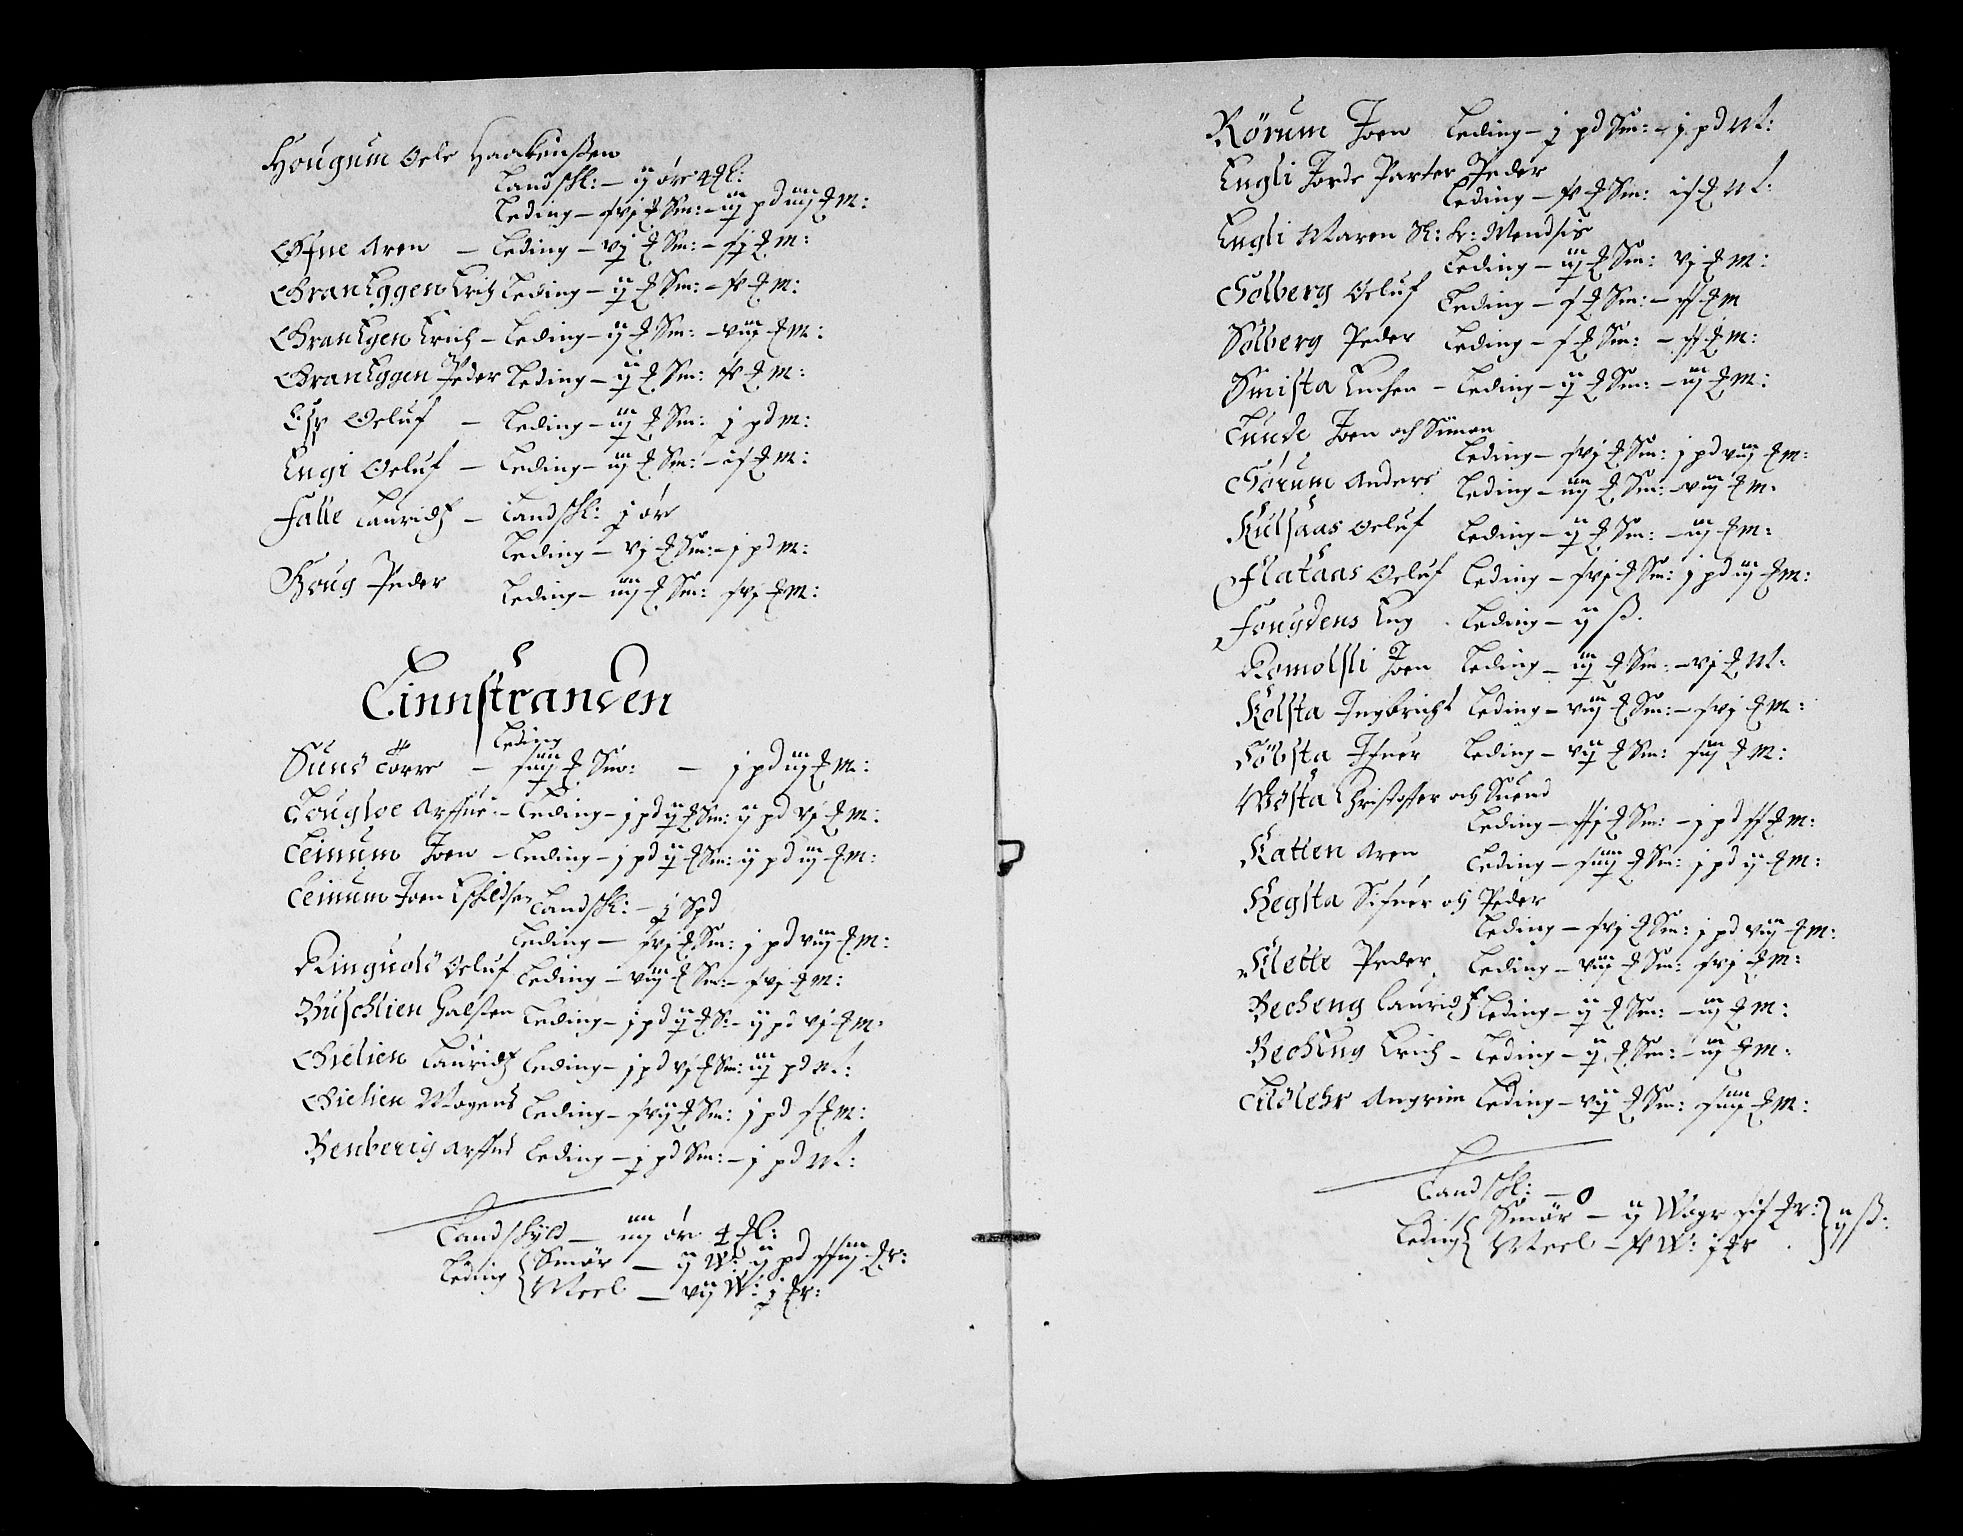 Hougum Oele Haakenßen
Landschl: – ij ör 4 ₰l:
Leding – xvj ℔ Sm: – iij pd iiij ℔ M:
Aren – Leding – vj ℔ Sm: – xij ℔ M:
Graneggen Erich Leding – ij ℔ Sm: – xv ℔ M:
Granegen Erich – Leding – ij ℔ Sm: – viij ℔ M:
Graneggen Peder Leding – ij ℔ Sm: xv ℔ M:
Esp Oeluf – Leding – iiij ℔ Sm: j pd M:
Engi Oeluf – Leding – iiij ℔ Sm: – ix ℔ M:
Falle Lauridz – Landschl: j ör
Leding – vj ℔ Sm: – j pd M:
Houg Peder Leding – iiij ℔ Sm: xvj ℔ M:
Linnstranden
Leding
Sund Torre – xiiij ℔ Smör: – j pd iiij ℔ M:
Lougloe Arffue – Leding – j pd ij ℔ Sm: ij pd vj ℔ M:
Leinum Joen – Leding – j pd ij ℔ Sm: ij pd iiij ℔ M:
Leinum Joen Eschildsen Landschl: – j Spd
Leding – xvj ℔ Sm: j pd viij ℔ M:
Ringuold Oeluf Leding – viij ℔ Sm: – xvj ℔ M:
Buschlien Halsten Leding – j pd ij ℔ S: – ij pd vj ℔ M:
Gielien Lauridz Leding – j pd vj ℔ Sm: iij pd M:
Gielien Mogens Leding – xvij ℔ Sm: j pd x ℔ M:
Benberig Arffued Leding – j pd Sm: – j pd M:
Landschyld – iiij ör 4 ₰l:
Leding { Smör – ij W: ij pd xxiij ℔r:
Meel – vij W: j ℔r:
Rörum Joen Leding – j pd Sm: – j pd M:
Engli Jorde Parter Peder
Leding – xv ℔ Sm: ix ℔ M:
Engli Maren Sl: Hr: Mendsis
Leding – iij ℔ Sm: vj ℔ M:
Solberg Oeluf Leding – x ℔ Sm: – xx ℔ M
Solberg Peder Leding – x ℔ Sm: – xx ℔ M:
Smista Leding – ij ℔ Sm: – iiij ℔ M:
Lunde Joen och Simen
Leding – xvj ℔ Sm: j pd viij ℔ M:
Görum Anders Leding – iiij ℔ Sm: – viij ℔ M:
Kulsaas Oeluf Leding – ij ℔ Sm: – iiij ℔ M:
Flataas Oeluf Leding – xvj ℔ Sm: j pd iij ℔ M:
Fougdens Eng Leding – ij ß.
Romolsli Joen Leding – iij ℔ Sm: – vj ℔ M:
Kolsta Ingebricht Leding – viij ℔ Sm: – xvj ℔ M:
Löbsta Ifuer Leding – vij ℔ Sm: xiiij ℔ M:
Wosta Christoffer och Suend
Leding – xxj ℔ Sm: – j pd xx ℔ M:
Katten Aren Leding – xiiij ℔ Sm: j pd ij ℔ M:
Hegsta Sifuer och Peder
Leding – xvj ℔ Sm: j pd viij ℔ M:
Klette Peder Leding – viij ℔ Sm: xvj ℔ M:
Becheng Lauridz Leding – ij ℔ Sm: – iiij ℔ M:
Beching Erich – Leding – ij ℔ Sm: – iiij ℔ M:
Angrim Leding – vij ℔ Sm: xiiij ℔ M:
Landschl: – 0
Leding { Smör – ij Wogr xix ℔r: } ij ß:
Meel – xv W: j ℔r